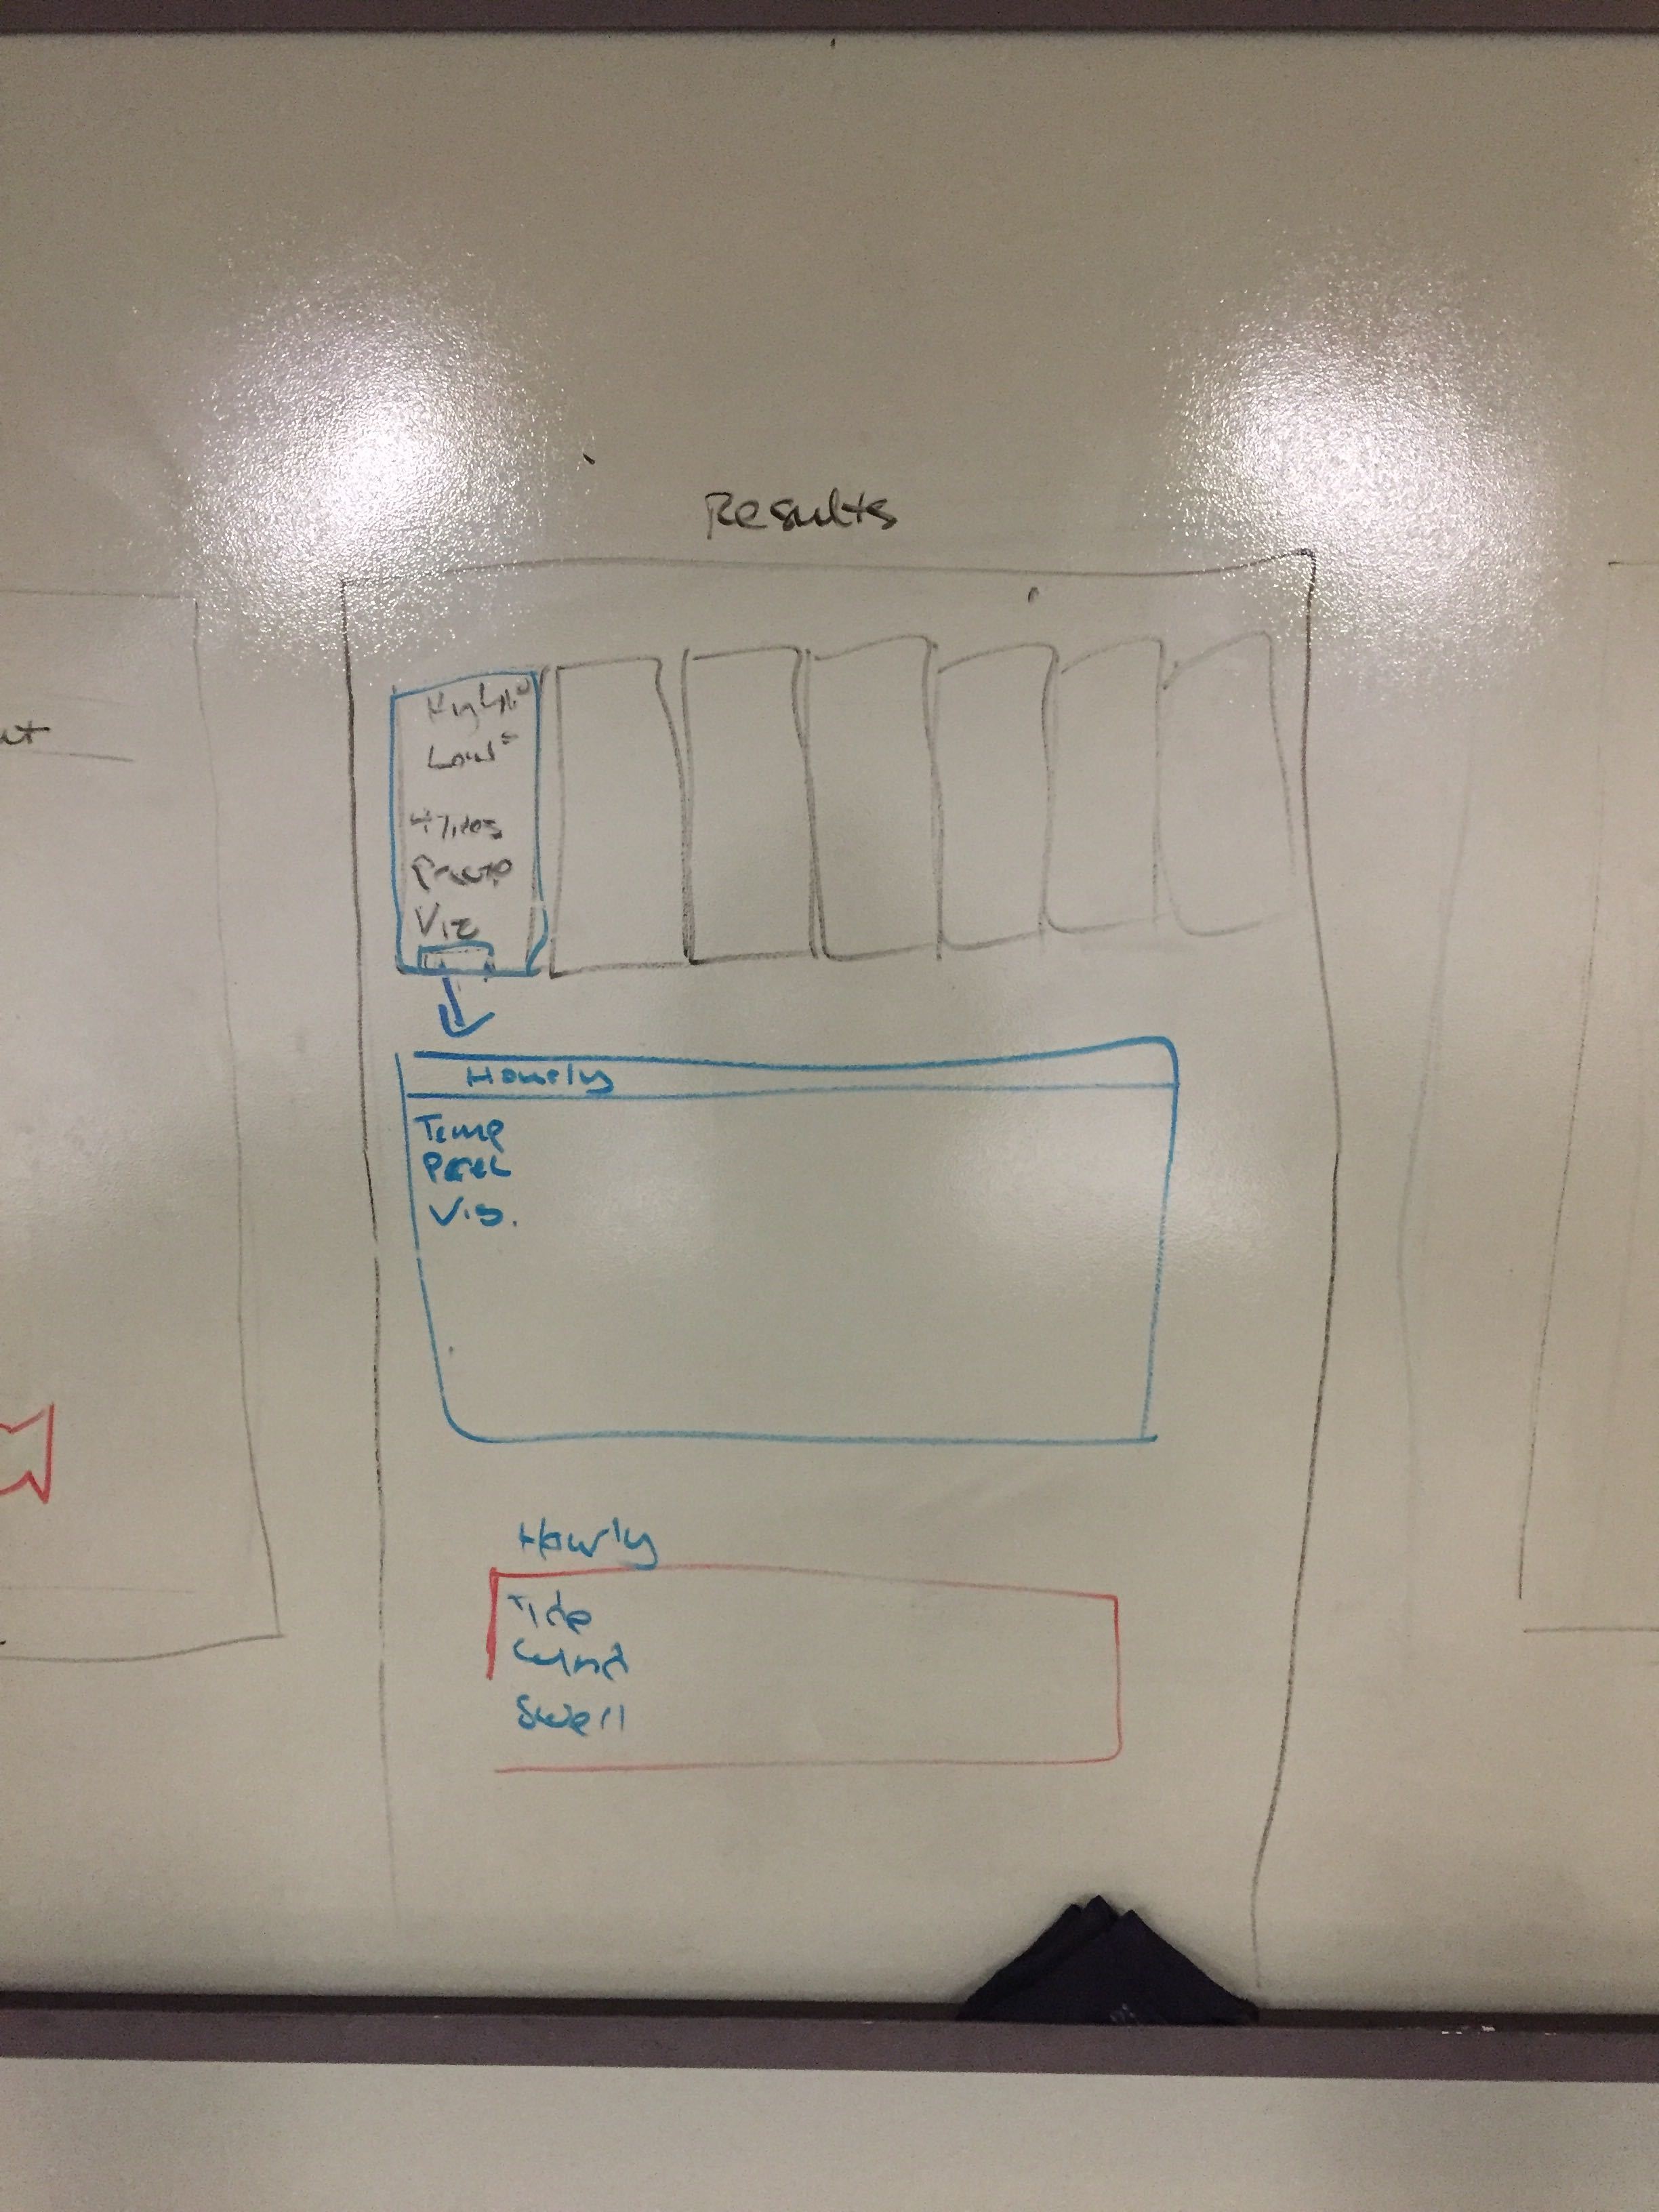 Results
High°
Low°
4 Tides
Precip
Viz
Hourly
Temp
Vis.
Hourly
Tide
Wind
Swell